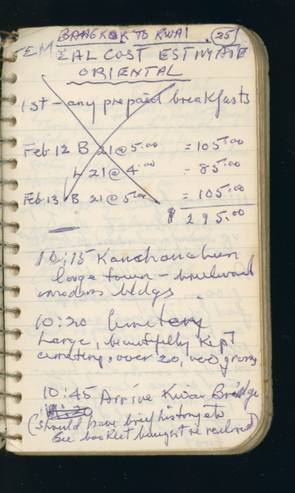 BANGKOK TO KWAI (25)
SEM EAL COST ESTIMATE
ORIENTAL
1st - any prepaid breakfasts
Feb 12 B 21 @ 5.00 = 105.00
L 21 @ 4.00 = 85.00
Feb 13 B 21 @ 5.00 = 105.00
$ 295.00
10:15 Kanchanaburi
large town - boulevard
modern bldgs
10:30 Cemetery
Large, beautifully kept
cemetery, over 20,000 graves
10:45 Arrive Kwai Bridge
(should have brief history etc
See booklet bought re received)